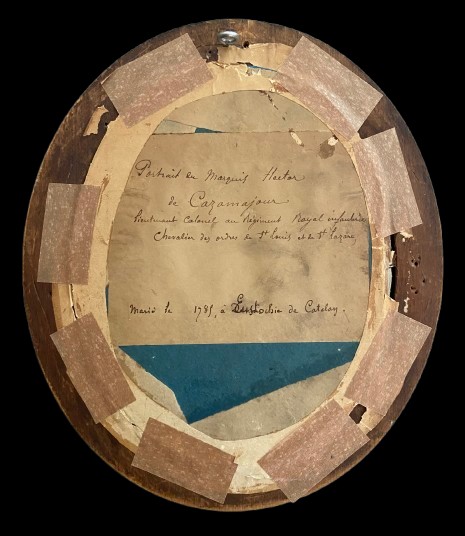 Portrait du Marquis Hector
de Cazamajour
Lieutenant Colonel au Régiment Royal infanterie
Chevalier des ordres de St Louis et de St Lazare
Marié le 1785, à Eustochie de Catelan.